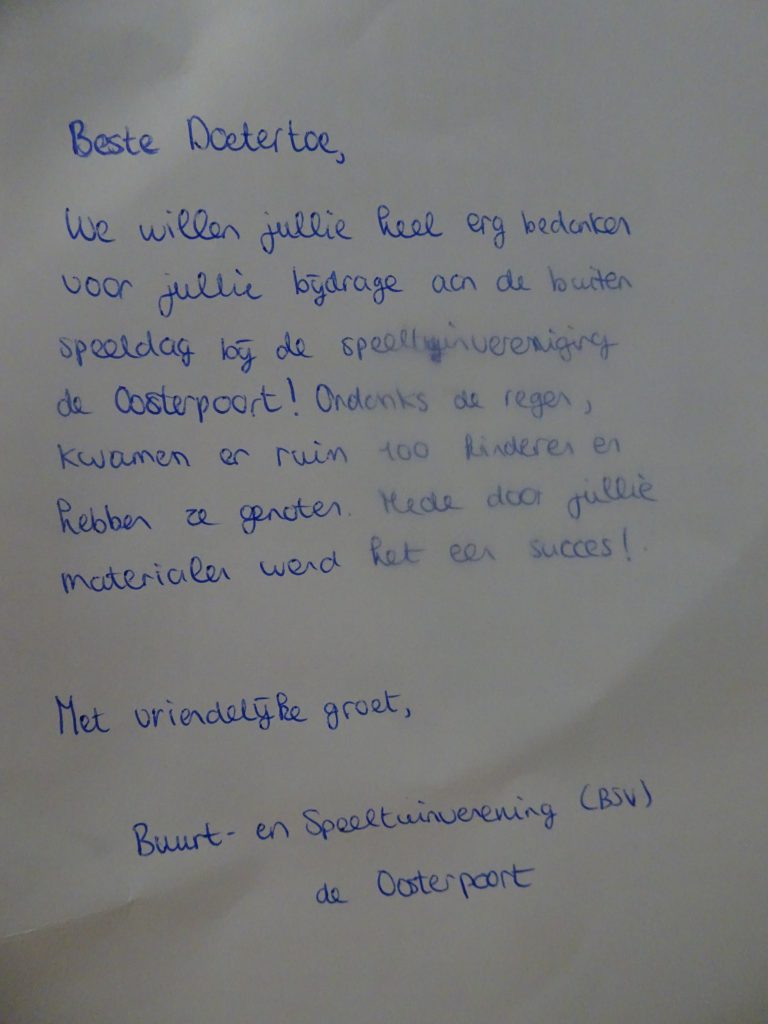 Beste Doetertoe,
We willen jullie heel erg bedanken
voor jullie bijdrage aan de buiten
speeldag bij de speeltuinvereniging
de Oosterpoort! Ondanks de regen,
kwamen er ruim 100 kinderen en
hebben ze genoten. Mede door jullie
materialen werd het een succes!
Met vriendelijke groet,
Buurt- en Speeltuinverening (BSV)
de Oosterpoort